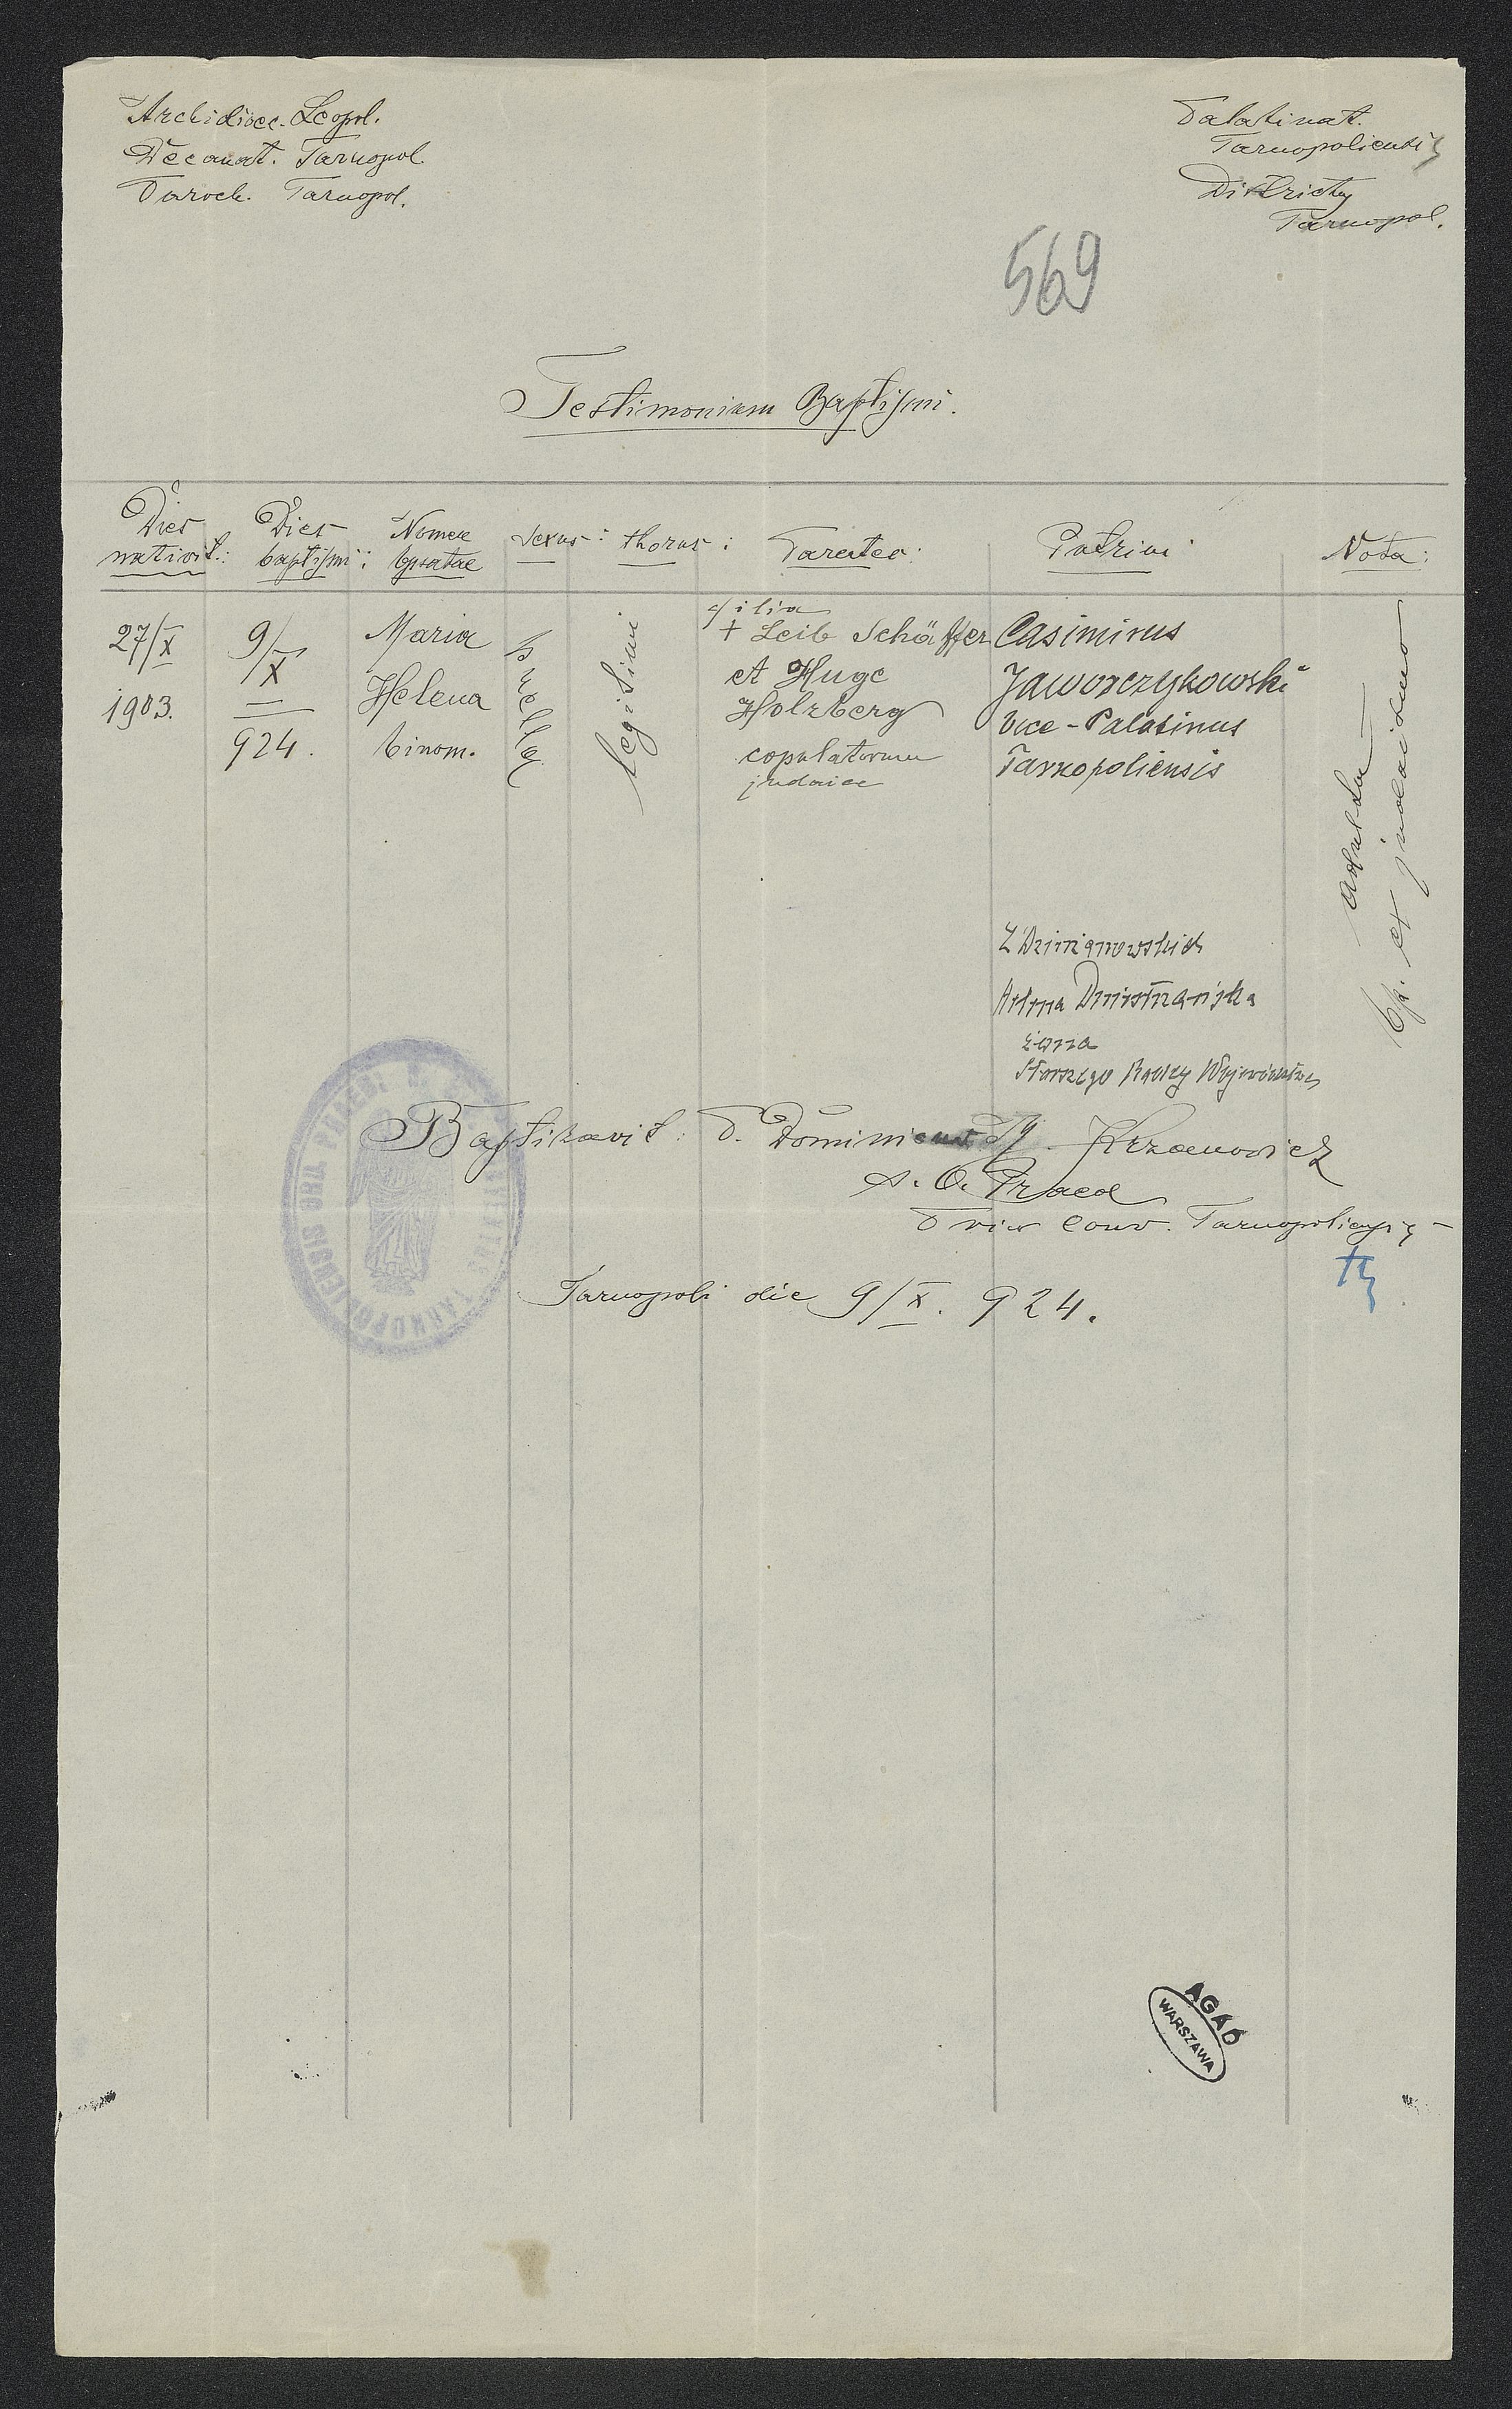 Archidioec. Leopol.
Decanat. Tarnopol.
Paroch. Tarnopol.
Palatinat.
Tarnopoliensis
Districtus
Tarnopol.
569
Testimonium Baptismi.
Dies
nativit.:
Dies
baptismi:
Nomen
bpsatae
sexus:
thorus:
Parentes:
Patrini
Nota:
27/X
1903.
9/X
924.
Maria
Helena
binom.
puella
legitimi
filia
+ Leib Schäffer
et Huge
Holzberg
copulatorum
judaice
Casimirus
Jaworczykowski
Vice-Palatinus
Tarnopoliensis
Z
Dnistrzańska
żona
Starszego Radcy Województwa
adulta
bp. et judaismo
Baptizavit: P. Dominicus Krzanowicz
S. O. Praed
Prior Conv. Tarnopoliensis
Tarnopoli die 9/X. 924.
TARNOPOLIENSIS ORD. PRAED.
AGAD
WARSZAWA